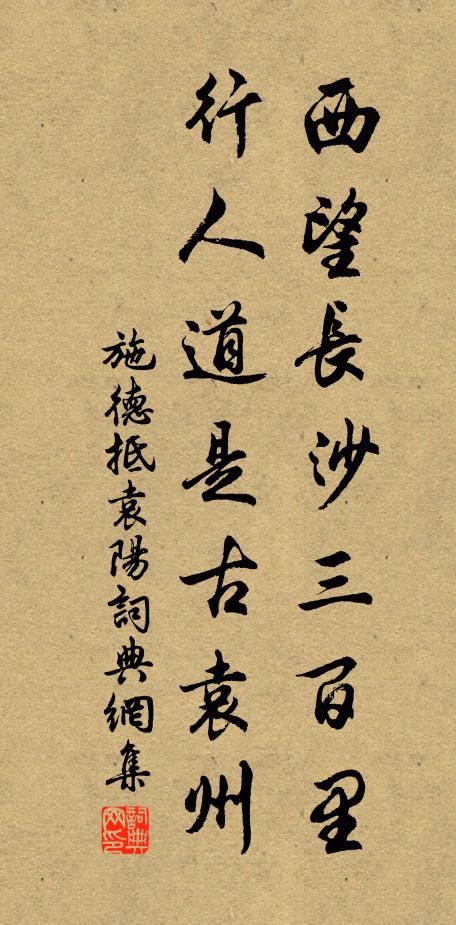 西望長沙三百里
行人道是古袁州
施德抵袁陽詞典網集
詞典網印